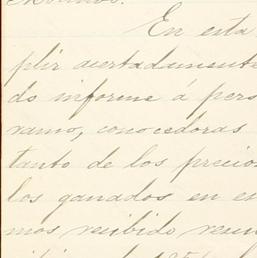 En esta
plir acertadamente
do informe á pers
ramo, conocedoras
tanto de los precio
los ganados en es
mos, recibido